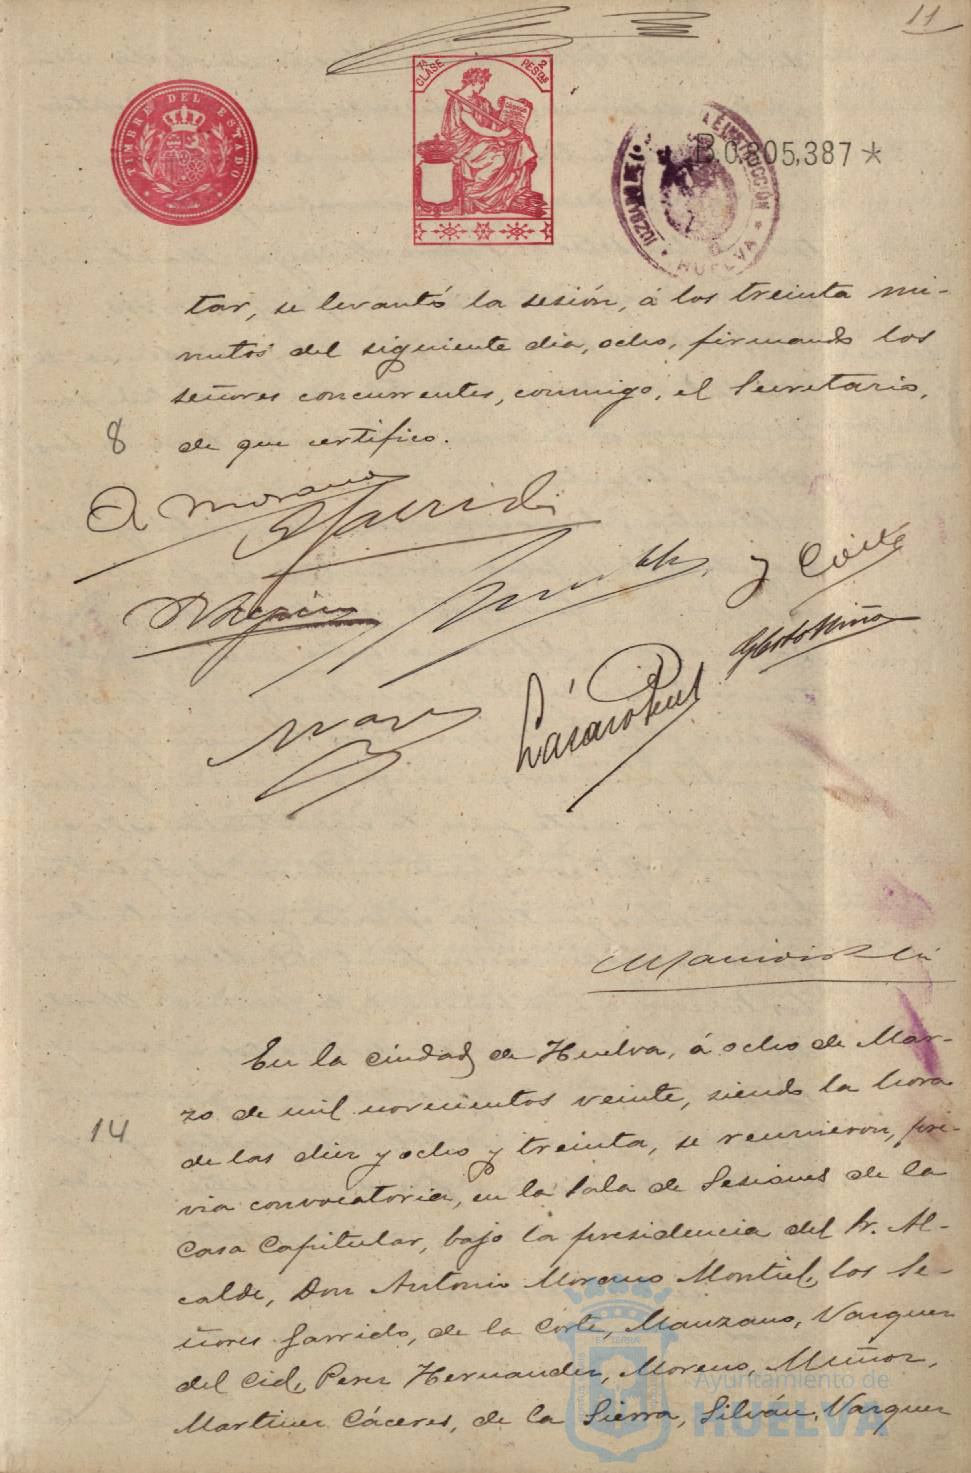 11
TIMBRE DEL ESTADO
7ª CLASE 2 PESETAS
B.0.805,387 *
INSTRUCCIÓN * HUELVA *
tar, se levantó la sesión, á los treinta mi-
nutos del siguiente dia, ocho, firmando los
señores concurrentes, conmigo, el Secretario,
8 de que certifico.
A Morano
Garrido
y Corte
Lázaro Perez
En la ciudad de Huelva, á ocho de Mar-
zo de mil novecientos veinte, siendo la hora
14 de las diez y ocho y treinta, se reunieron, pré-
via convocatoria, en la Sala de Sesiones de la
Casa Capitular, bajo la presidencia del Sr. Al-
calde, Don Antonio Morano Montiel, los Se-
ñores Garrido, de la Corte, Manzano, Vazquez
del Cid, Perez Hernandez, Moreno, Muñoz,
Martinez Cáceres, de la Sierra, Silván, Vazquez
Ayuntamiento de
HUELVA